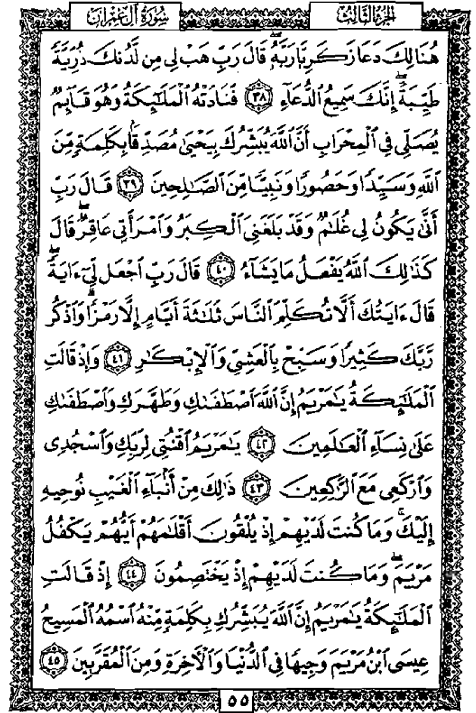 الجزء الثالث
سورة آل عمران
هُنَالِكَ دَعَا زَكَرِيَّا رَبَّهُۥ قَالَ رَبِّ هَبْ لِى مِن لَّدُنكَ ذُرِّيَّةً
طَيِّبَةً إِنَّكَ سَمِيعُ الدُّعَآءِ ٣٨ فَنَادَتْهُ الْمَلَٰٓئِكَةُ وَهُوَ قَآئِمٌ
يُصَلِّى فِى الْمِحْرَابِ أَنَّ اللَّهَ يُبَشِّرُكَ بِيَحْيَىٰ مُصَدِّقًا بِكَلِمَةٍ مِّنَ
اللَّهِ وَسَيِّدًا وَحَصُورًا وَنَبِيًّا مِّنَ الصَّٰلِحِينَ ٣٩ قَالَ رَبِّ
أَنَّىٰ يَكُونُ لِى غُلَٰمٌ وَقَدْ بَلَغَنِىَ الْكِبَرُ وَامْرَأَتِى عَاقِرٌ قَالَ
كَذَٰلِكَ اللَّهُ يَفْعَلُ مَا يَشَآءُ ٤٠ قَالَ رَبِّ اجْعَل لِّىٓ ءَايَةً
قَالَ ءَايَتُكَ أَلَّا تُكَلِّمَ النَّاسَ ثَلَٰثَةَ أَيَّامٍ إِلَّا رَمْزًا وَاذْكُر
رَّبَّكَ كَثِيرًا وَسَبِّحْ بِالْعَشِىِّ وَالْإِبْكَٰرِ ٤١ وَإِذْ قَالَتِ
الْمَلَٰٓئِكَةُ يَٰمَرْيَمُ إِنَّ اللَّهَ اصْطَفَىٰكِ وَطَهَّرَكِ وَاصْطَفَىٰكِ
عَلَىٰ نِسَآءِ الْعَٰلَمِينَ ٤٢ يَٰمَرْيَمُ اقْنُتِى لِرَبِّكِ وَاسْجُدِى
وَارْكَعِى مَعَ الرَّٰكِعِينَ ٤٣ ذَٰلِكَ مِنْ أَنۢبَآءِ الْغَيْبِ نُوحِيهِ
إِلَيْكَ وَمَا كُنتَ لَدَيْهِمْ إِذْ يُلْقُونَ أَقْلَٰمَهُمْ أَيُّهُمْ يَكْفُلُ
مَرْيَمَ وَمَا كُنتَ لَدَيْهِمْ إِذْ يَخْتَصِمُونَ ٤٤ إِذْ قَالَتِ
الْمَلَٰٓئِكَةُ يَٰمَرْيَمُ إِنَّ اللَّهَ يُبَشِّرُكِ بِكَلِمَةٍ مِّنْهُ اسْمُهُ الْمَسِيحُ
عِيسَى ابْنُ مَرْيَمَ وَجِيهًا فِى الدُّنْيَا وَالْءَاخِرَةِ وَمِنَ الْمُقَرَّبِينَ ٤٥
٥٥